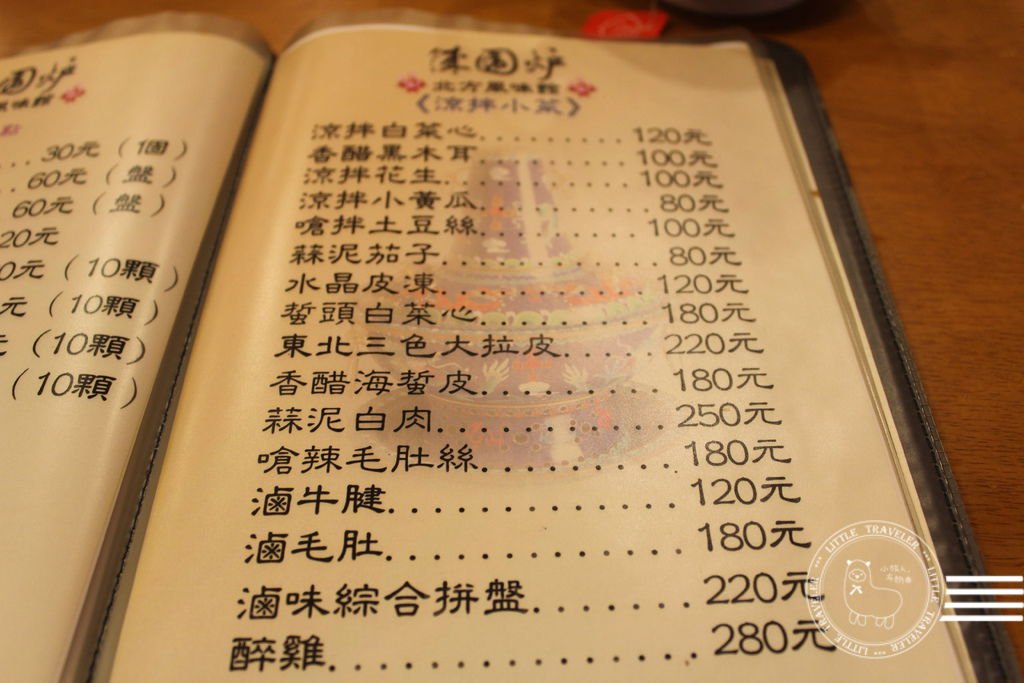 圍炉
風味館
點
...30元（1個）
..60元（盤）
60元（盤）
20元
0元（10顆）
元（10顆）
元（10顆）
（10顆）
圍炉
北方風味館
《涼拌小菜》
涼拌白菜心............120元
香醋黑木耳............100元
涼拌花生............100元
涼拌小黃瓜............80元
嗆拌土豆絲............100元
蒜泥茄子............80元
水晶皮凍............120元
蜇頭白菜心............180元
東北三色大拉皮......220元
香醋海蜇皮............180元
蒜泥白肉............250元
嗆辣毛肚絲............180元
滷牛腱............120元
滷毛肚............180元
滷味綜合拼盤.......220元
醉雞............280元
LITTLE TRAVELER
LITTLE TRAVELER
LITTLE TRAVELER
小旅人